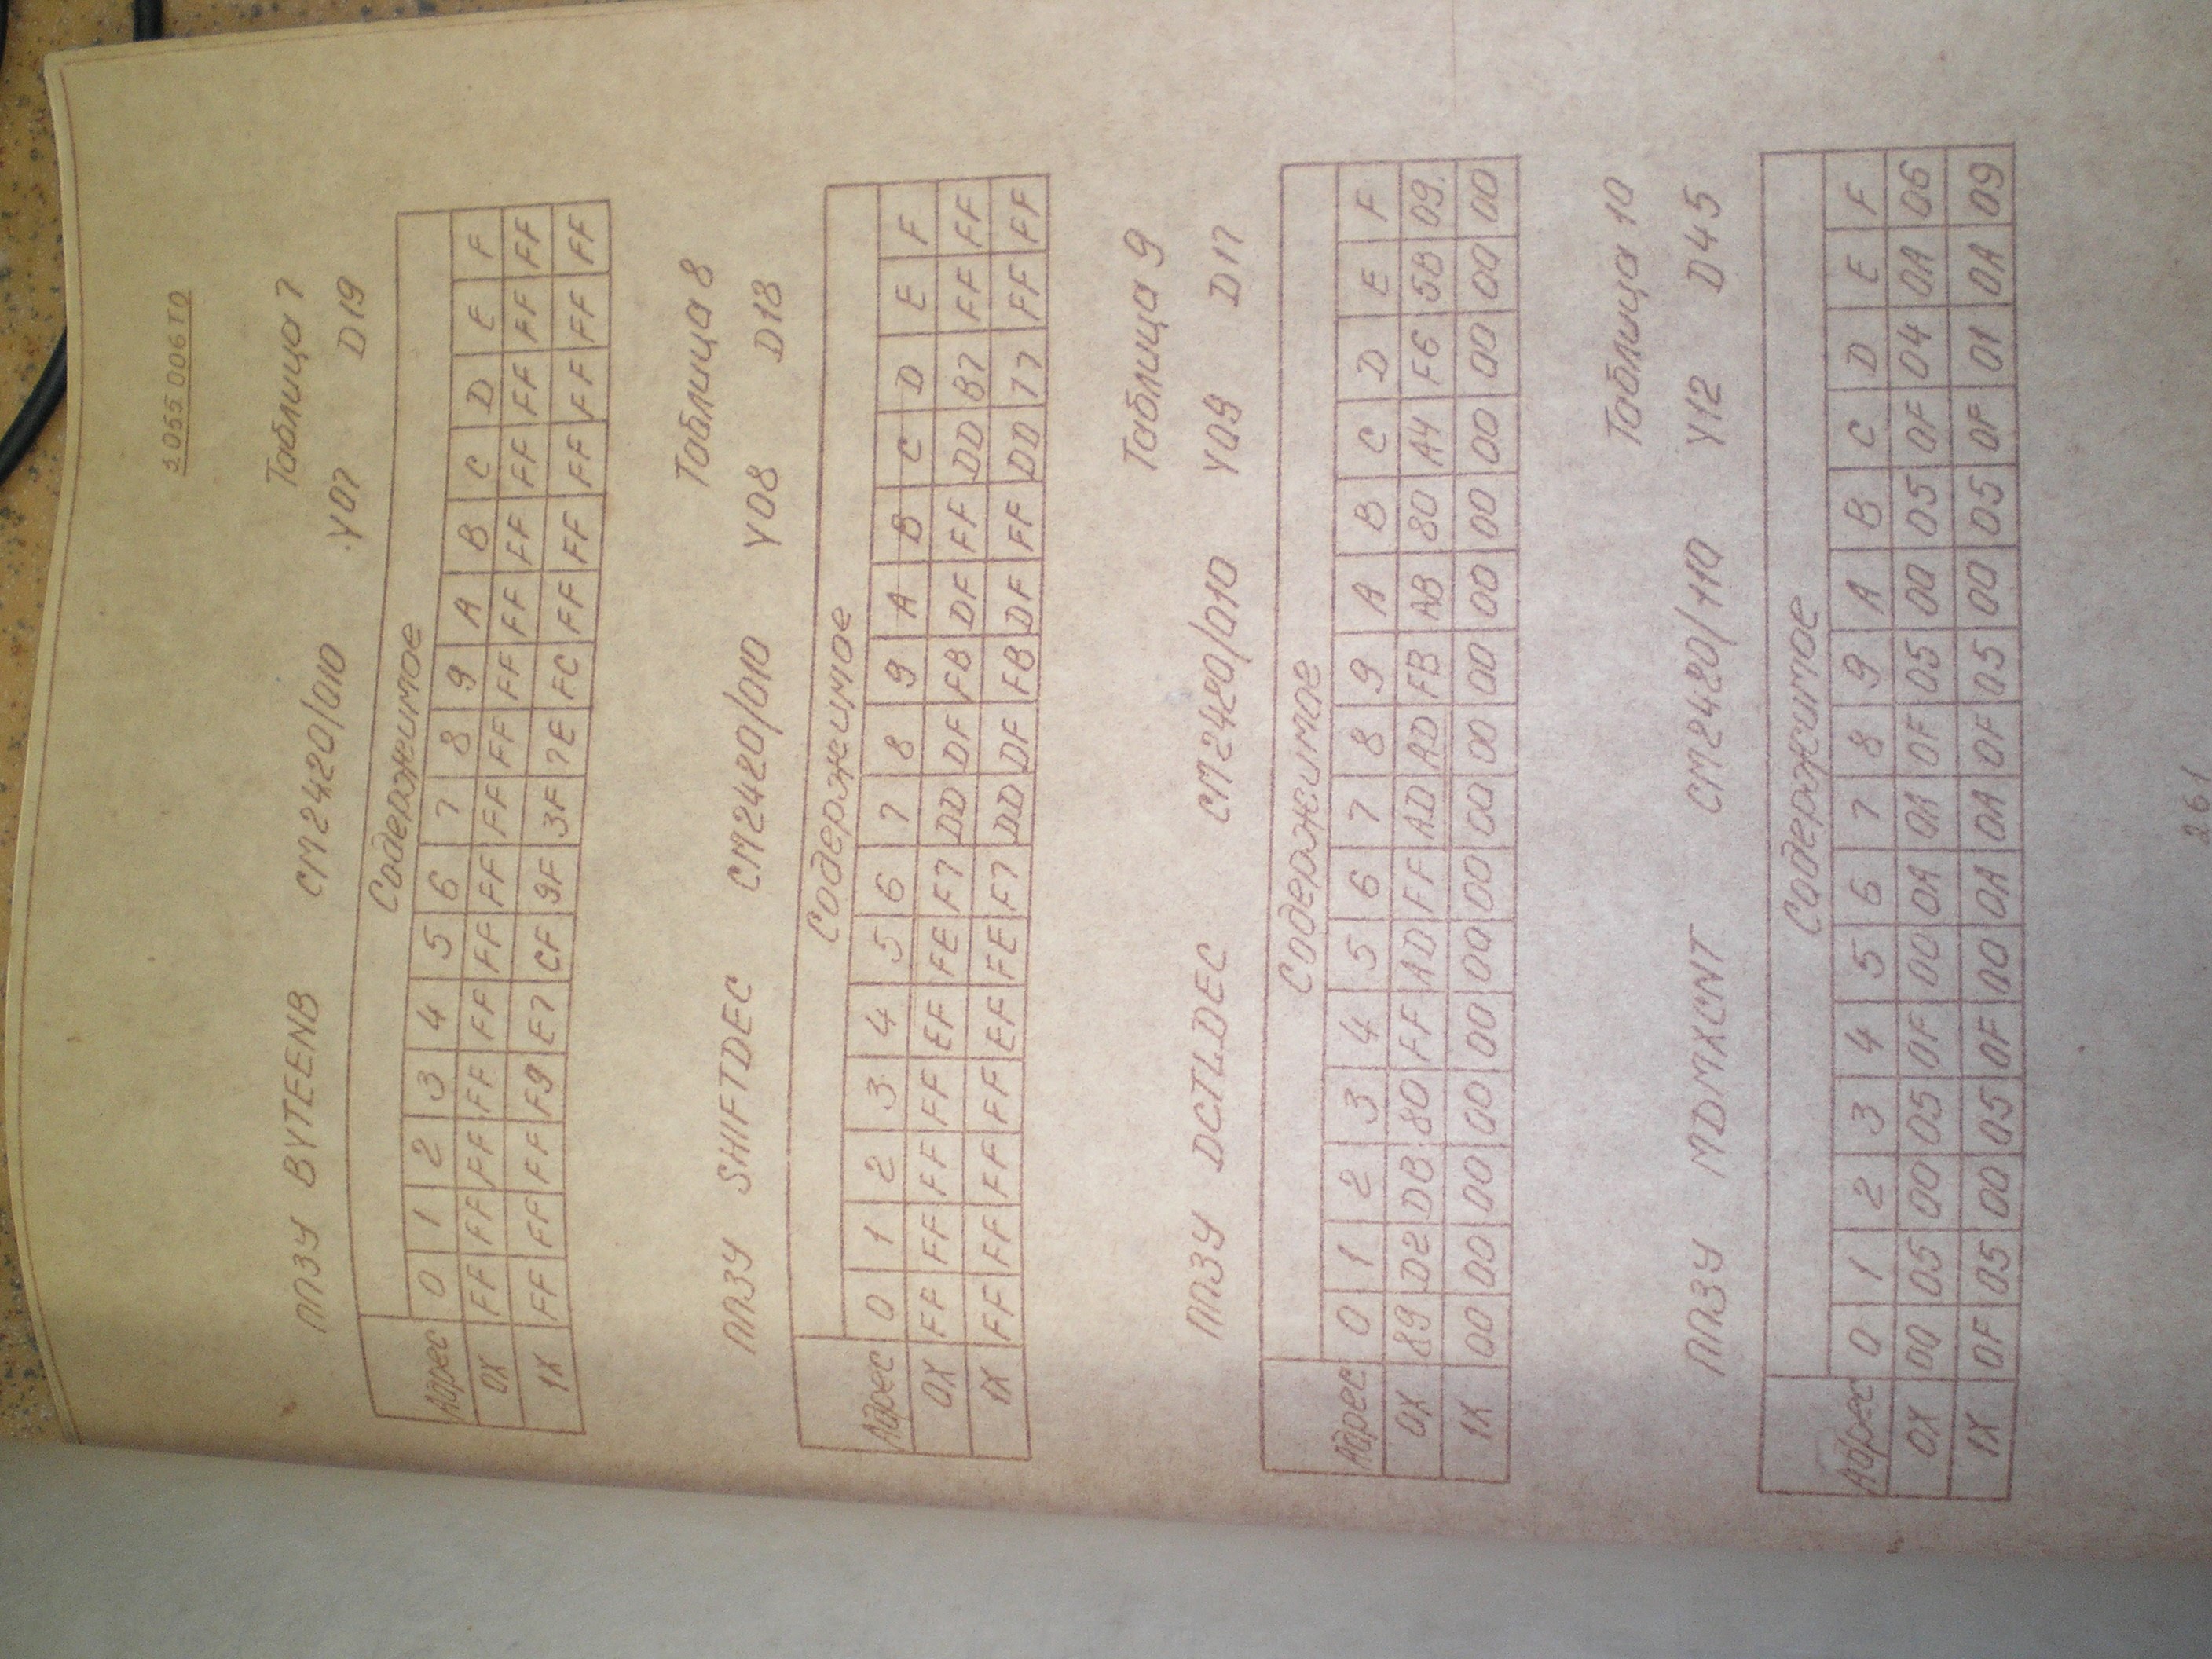 3.055.006 ТО
Таблица 7
ППЗУ BYTEENB СМ2420/010 У07 D19
Содержимое
Адрес 0 1 2 3 4 5 6 7 8 9 A B C D E F
0X FF FF FF FF FF FF FF FF FF FF FF FF FF FF FF FF
1X FF FF FF F9 E7 CF 9F 3F 7E FC FF FF FF FF FF FF
Таблица 8
ППЗУ SHIFTDEC СМ2420/010 У08 D18
Содержимое
Адрес 0 1 2 3 4 5 6 7 8 9 A B C D E F
0X FF FF FF FF EF FE F7 DD DF FB DF FF DD B7 FF FF
1X FF FF FF FF EF FE F7 DD DF FB DF FF DD 77 FF FF
Таблица 9
ППЗУ DCTLDEC СМ2420/010 У09 D17
Содержимое
Адрес 0 1 2 3 4 5 6 7 8 9 A B C D E F
0X 89 D2 DB 80 FF AD FF AD AD FB AB 80 A4 F6 5B 09
1X 00 00 00 00 00 00 00 00 00 00 00 00 00 00 00 00
Таблица 10
ППЗУ MDMXCNT СМ2420/110 У12 D45
Содержимое
Адрес 0 1 2 3 4 5 6 7 8 9 A B C D E F
0X 00 05 00 05 0F 00 0A 0A 0F 05 00 05 0F 04 0A 06
1X 0F 05 00 05 0F 00 0A 0A 0F 05 00 05 0F 01 0A 09
261